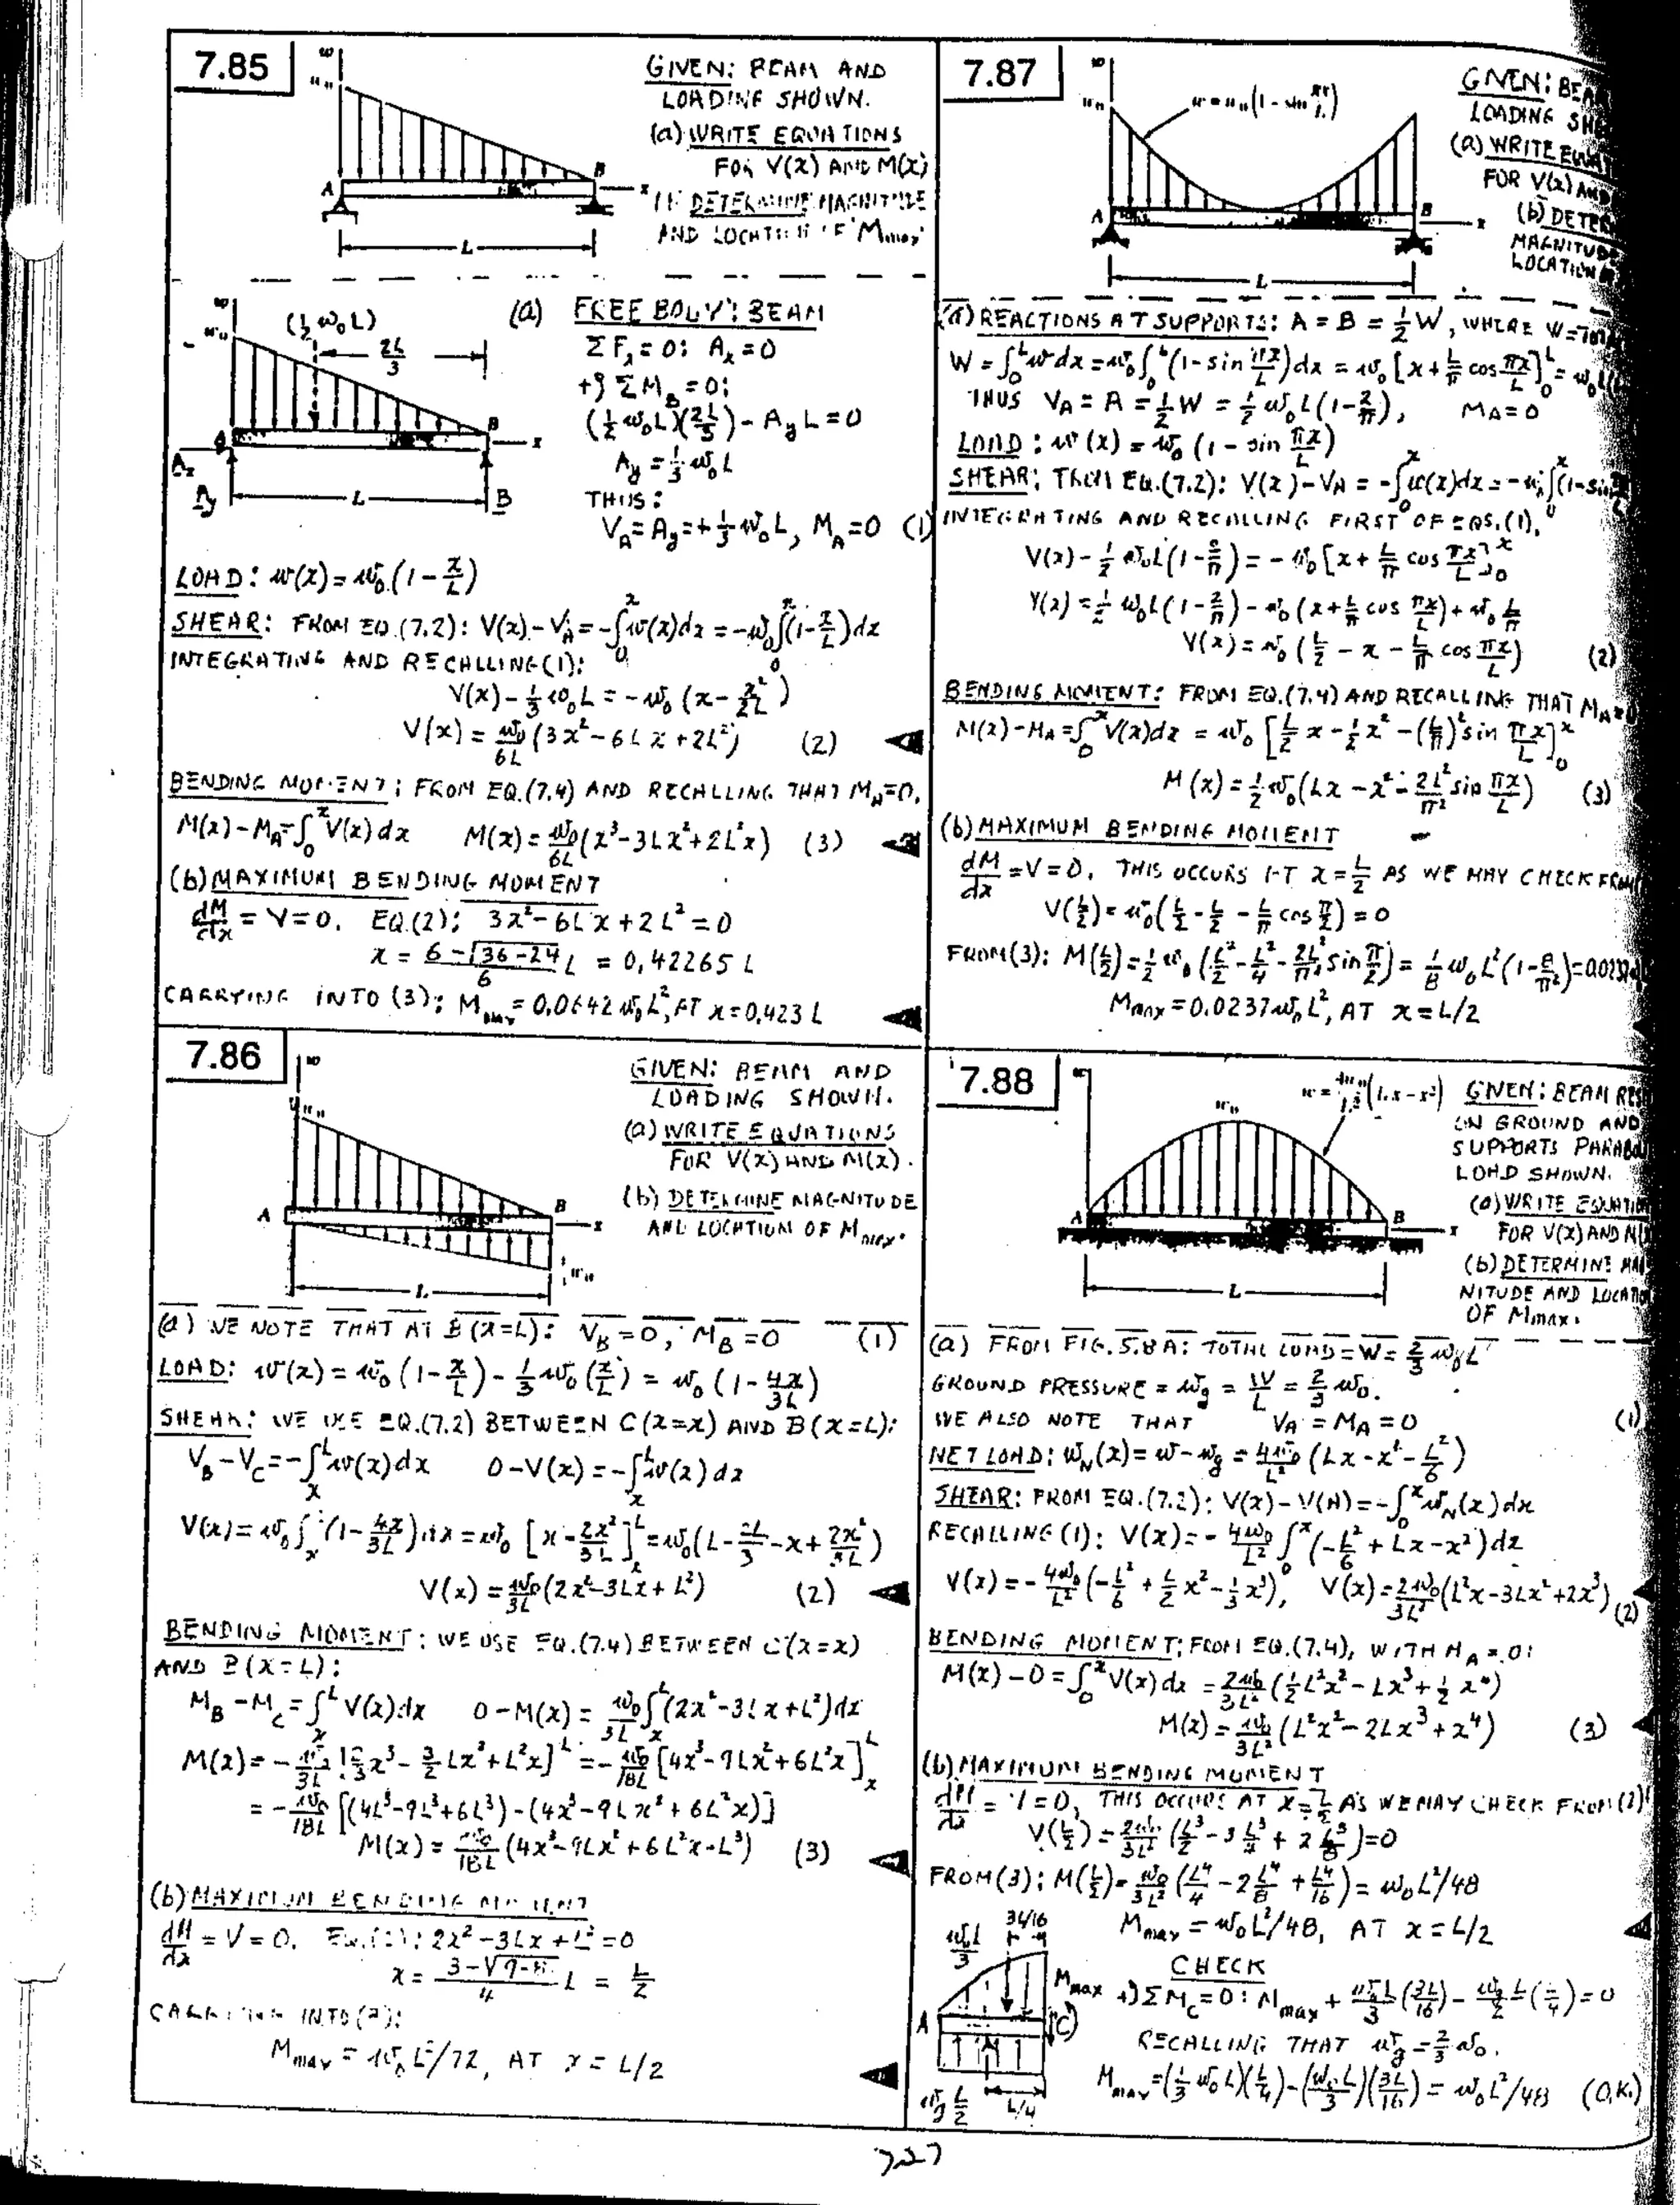 7.85
w
w₀
GIVEN: BEAM AND
LOADING SHOWN.
(a) WRITE EQUATIONS
FOR V(x) AND M(x)
DETERMINE MAGNITUDE
AND LOCATION OF Mmax.
A
B
x
L
w
w₀
(½ w₀L)
2L/3
A
B
x
Ax
Ay
L
B
(a) FREE BODY: BEAM
ΣFx = 0: Ax = 0
+⤸ ΣM_B = 0:
(½ w₀L)(2L/3) - Ay L = 0
Ay = ⅓ w₀L
THUS:
V_A = Ay = +⅓ w₀L, M_A = 0 (1)
LOAD: w(x) = w₀(1 - x/L)
SHEAR: FROM EQ.(7.2): V(x) - V_A = -∫₀ˣ w(x)dx = -w₀∫₀ˣ(1 - x/L)dx
INTEGRATING AND RECALLING (1):
V(x) - ⅓ w₀L = -w₀(x - x²/2L)
V(x) = w₀/6L (3x² - 6Lx + 2L²) (2)
BENDING MOMENT: FROM EQ.(7.4) AND RECALLING THAT M_A = 0,
M(x) - M_A = ∫₀ˣ V(x)dx M(x) = w₀/6L (x³ - 3Lx² + 2L²x) (3)
(b) MAXIMUM BENDING MOMENT
dM/dx = V = 0. EQ.(2): 3x² - 6Lx + 2L² = 0
x = (6 - √(36-24))/6 L = 0.42265 L
CARRYING INTO (3): Mmax = 0.0642 w₀L², AT x = 0.423 L
7.86
w
w₀
GIVEN: BEAM AND
LOADING SHOWN.
(a) WRITE EQUATIONS
FOR V(x) AND M(x).
(b) DETERMINE MAGNITUDE
AND LOCATION OF Mmax.
A
B
x
L
(a) WE NOTE THAT AT B (x=L): V_B = 0, M_B = 0 (1)
LOAD: w(x) = w₀(1 - x/L) - ⅓ w₀(x/L) = w₀(1 - 4x/3L)
SHEAR: WE USE EQ.(7.2) BETWEEN C(x=x) AND B(x=L):
V_B - V_C = -∫ₓᴸ w(x)dx 0 - V(x) = -∫ₓᴸ w(x)dx
V(x) = w₀∫ₓᴸ(1 - 4x/3L)dx = w₀[x - 2x²/3L]ₓᴸ = w₀(L - 2L/3 - x + 2x²/3L)
V(x) = w₀/3L (2x² - 3Lx + L²) (2)
BENDING MOMENT: WE USE EQ.(7.4) BETWEEN C(x=x)
AND B(x=L):
M_B - M_C = ∫ₓᴸ V(x)dx 0 - M(x) = w₀/3L ∫ₓᴸ(2x² - 3Lx + L²)dx
M(x) = -w₀/3L [⅔x³ - 3/2 Lx² + L²x]ᴸ = -w₀/18L [4x³ - 9Lx² + 6L²x]ₓᴸ
= -w₀/18L [(4L³ - 9L³ + 6L³) - (4x³ - 9Lx² + 6L²x)]
M(x) = w₀/18L (4x³ - 9Lx² + 6L²x - L³) (3)
(b) MAXIMUM BENDING MOMENT
dM/dx = V = 0. EQ.(2): 2x² - 3Lx + L² = 0
x = (3 - √(9-8))/4 L = L/2
CARRYING INTO (3):
Mmax = w₀L²/72, AT x = L/2
7.87
w
w₀
w = w₀(1 - sin πx/L)
LOADING
(a) WRITE
FOR V(x)
(b)
A
B
x
L
(a) REACTIONS AT SUPPORTS: A = B = ½W, WHERE W =
W = ∫₀ᴸ w dx = w₀∫₀ᴸ(1 - sin πx/L)dx = w₀[x + L/π cos πx/L]₀ᴸ =
THUS V_A = A = ½W = ½ w₀L(1 - 2/π), M_A = 0
LOAD: w(x) = w₀(1 - sin πx/L)
SHEAR: FROM EQ.(7.2): V(x) - V_A = -∫₀ˣ w(x)dx = -w₀∫₀ˣ(1 - sin
INTEGRATING AND RECALLING FIRST OF EQS.(1),
V(x) - ½ w₀L(1 - 2/π) = -w₀[x + L/π cos πx/L]₀ˣ
V(x) = ½ w₀L(1 - 2/π) - w₀(x + L/π cos πx/L) + w₀ L/π
V(x) = w₀(L/2 - x - L/π cos πx/L) (2)
BENDING MOMENT: FROM EQ.(7.4) AND RECALLING THAT M_A
M(x) - M_A = ∫₀ˣ V(x)dx = w₀[L/2 x - ½x² - (L/π)² sin πx/L]₀ˣ
M(x) = ½ w₀(Lx - x² - 2L²/π² sin πx/L) (3)
(b) MAXIMUM BENDING MOMENT
dM/dx = V = 0. THIS OCCURS AT x = L/2 AS WE MAY CHECK FROM
V(L/2) = w₀(L/2 - L/2 - L/π cos π/2) = 0
FROM (3): M(L/2) = ½ w₀(L²/2 - L²/4 - 2L²/π² sin π/2) = ⅛ w₀L²(1 - 8/π²) = 0.0237
Mmax = 0.0237 w₀L², AT x = L/2
7.88
w₀
w = 4w₀/L² (Lx - x²)
GIVEN: BEAM
ON GROUND AND
SUPPORTS
LOAD SHOWN.
(a) WRITE
FOR V(x) AND
(b) DETERMINE
NITUDE AND LOCATION
OF Mmax.
A
B
x
L
(a) FROM FIG. 5.8A: TOTAL LOAD = W = ⅔ w₀L
GROUND PRESSURE = w_g = W/L = ⅔ w₀.
WE ALSO NOTE THAT V_A = M_A = 0 (1)
NET LOAD: w_N(x) = w - w_g = 4w₀/L² (Lx - x² - L²/6)
SHEAR: FROM EQ.(7.2): V(x) - V(A) = -∫₀ˣ w_N(x)dx
RECALLING (1): V(x) = -4w₀/L² ∫₀ˣ(-L²/6 + Lx - x²)dx
V(x) = -4w₀/L² (-L²/6 + L/2 x² - ⅓x³), V(x) = 2w₀/3L² (L²x - 3Lx² + 2x³) (2)
BENDING MOMENT: FROM EQ.(7.4), WITH M_A = 0:
M(x) - 0 = ∫₀ˣ V(x)dx = 2w₀/3L² (½L²x² - Lx³ + ½x⁴)
M(x) = w₀/3L² (L²x² - 2Lx³ + x⁴) (3)
(b) MAXIMUM BENDING MOMENT
dM/dx = V = 0, THIS OCCURS AT x = L/2 AS WE MAY CHECK FROM (2)
V(L/2) = 2w₀/3L² (L³/2 - 3 L³/4 + 2 L³/8) = 0
FROM (3): M(L/2) = w₀/3L² (L⁴/4 - 2 L⁴/8 + L⁴/16) = w₀L²/48
Mmax = w₀L²/48, AT x = L/2
CHECK
w₀L/3
3L/16
Mmax
A
C
w_g L/2
L/4
+⤸ΣM_C = 0: Mmax + w₀L/3 (3L/16) - w_g L/2 (L/4) = 0
RECALLING THAT w_g = ⅔ w₀.
Mmax = (⅓ w₀L)(L/4) - (w₀L/3)(3L/16) = w₀L²/48 (O.K.)
327